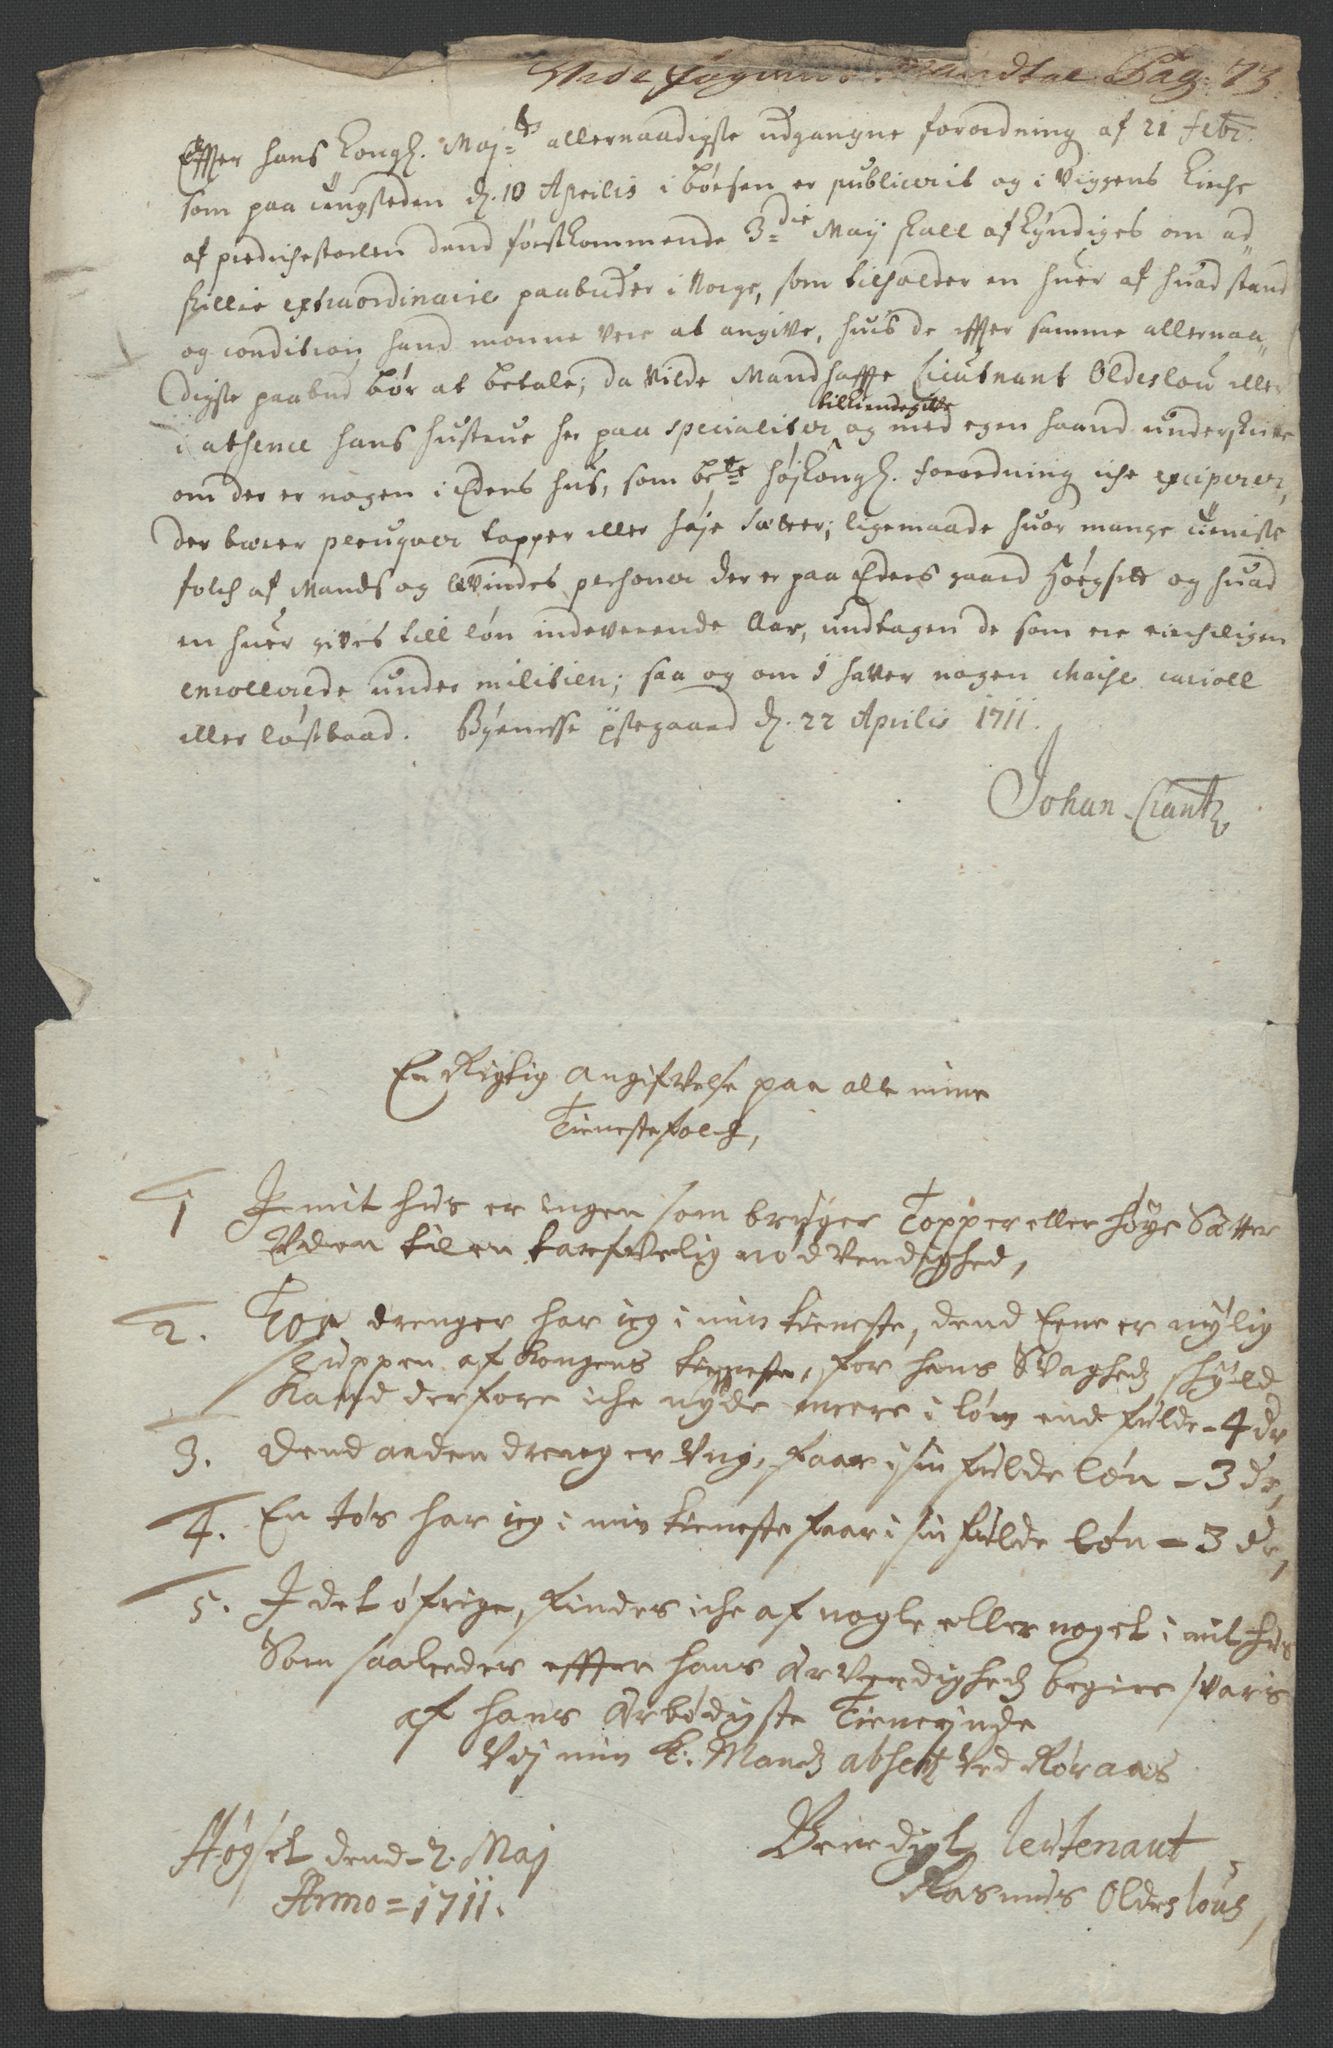 Vide fogdens Mandtal Pag: 73.
Effter hans Kongl. Maj.ts allernaadigste udgangne forordning af 21 febr.
som paa tingsteden d. 10 Aprilis i Børsen er publicerit og i Viggens Kirche
af predichestoelen dend førstkommende 3=die Maij skall afkyndiges om ad„
skillie extraordinaire paabuder i Norge, som tilholder en huer af huad stand
og condition hand monne vere at angive, huis de effter samme allernaa„
digste paabud bør at betale; da vilde Mandhaffte Lieutnant Oldeslou eller
i absence hans hustrue her paa specialiter tilkiendegifve og med egen haand underskrive
om der er nogen i Eders hus, som be.te højkongl. forordning iche exciperer,
der bærer peruqver topper eller høje sætter; ligemaade huor mange tieniste
folch af Mands og Qvindes personer der er paa Eders gaard Høegsett og huad
en huer gives till løn indeverende Aar, undtagen de som ere virchligen
enrollerede under militien; saa og om I haver nogen chaise carioll
eller løstbaad. Bynesse ystegaard d. 22 Aprilis 1711.
Johan Crantz
En Rigtig angifvelse paa alle mine
Tienestefolch,
1 I mit hus er ingen som bruger Topper eller høye Sætter
Vden til en tarfvelig nødvendighed,
2. Toe drenger har ieg i min tieneste, dend Eene er nylig
sluppen af Kongens tieneste, for hans Svagheds skyld
Kand derfore iche nyde meere i løn end fulde - 4 dr
3. Dend anden dreng er Vng, faar i sin fulde løn - 3 dr,
4. En tøs har ieg i min tieneste faar i sin fulde løn - 3 dr,
5. I det øfrige, findes iche af nogle eller noget i mit hus
Som saaleedes effter hans Ærverdigheds begiere svaris
af hans Ærbødigste Tienerinde
Vdj min k: Mands absentz Ved Røraas
Høgset dend - 2. Maj
Anno = 1711.
Benedigt leutenant
Rasmus Oldeslous,